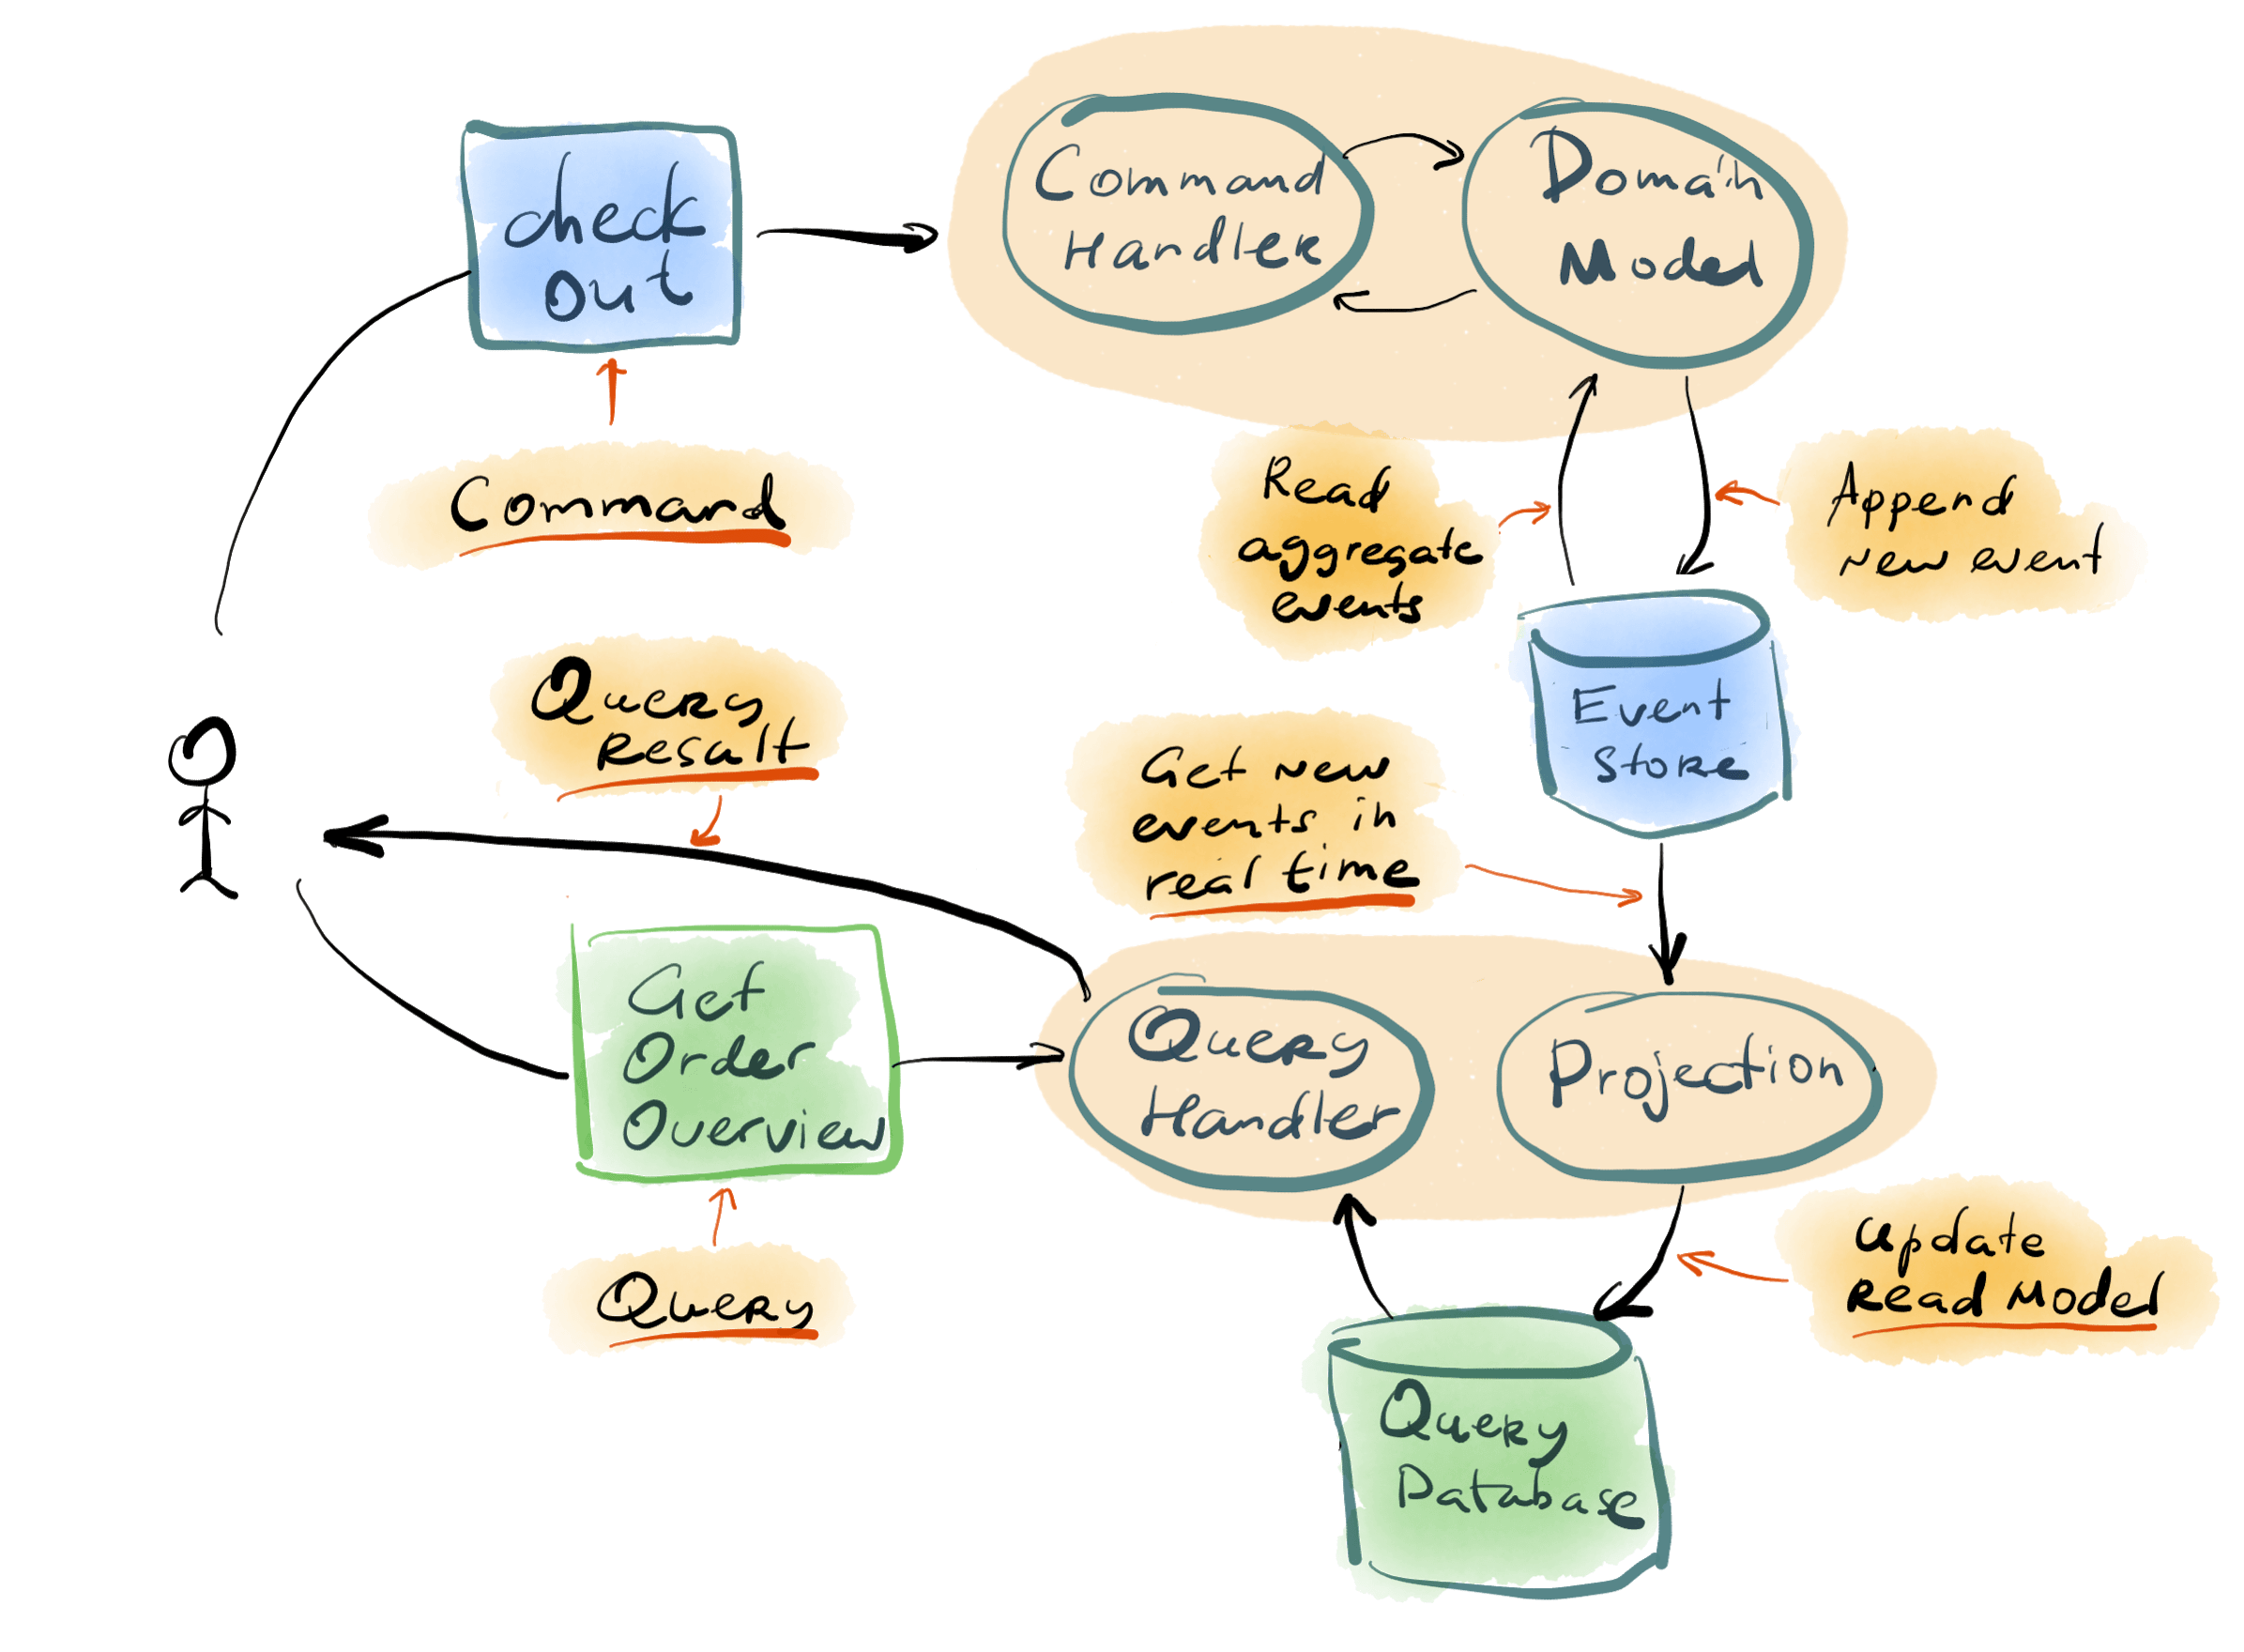 Check
Out
Command
Handler
Domain
Model
Command
Read
aggregate
events
Append
new event
Query
Result
Event
Store
Get new
events in
real time
Get
Order
Overview
Query
Handler
Projection
Query
Update
Read Model
Query
Database